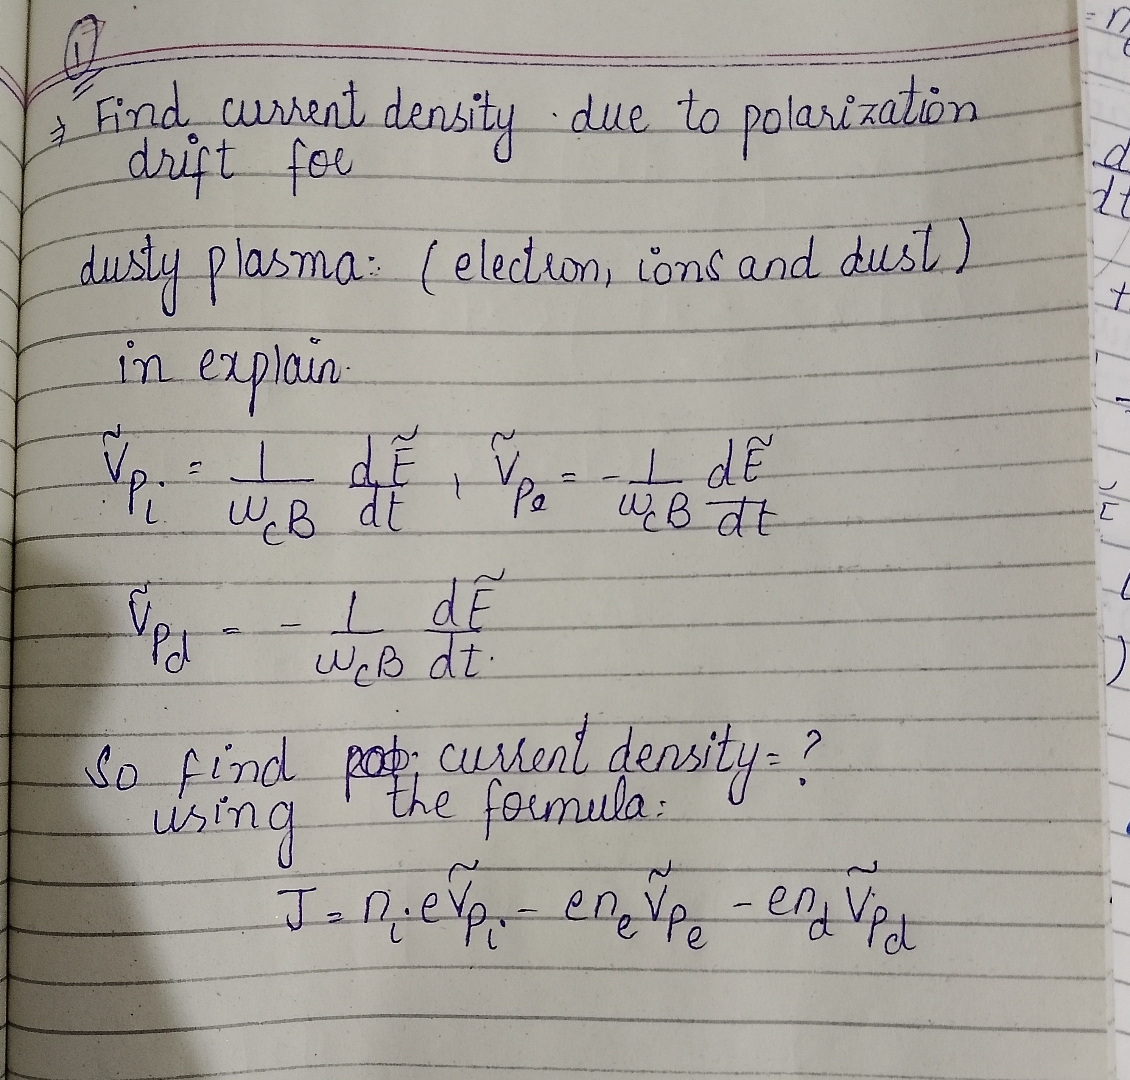 ①
⇒ Find current density due to polarization
drift for
dusty plasma: (electron, ions and dust)
in explain.
ṽ_Pi = 1/(ω_c B) dẼ/dt , ṽ_Pe = - 1/(ω_c B) dẼ/dt
ṽ_Pd = - 1/(ω_c B) dẼ/dt.
So find current density = ?
using the formula:
J = n_i e ṽ_Pi - e n_e ṽ_Pe - e n_d ṽ_Pd